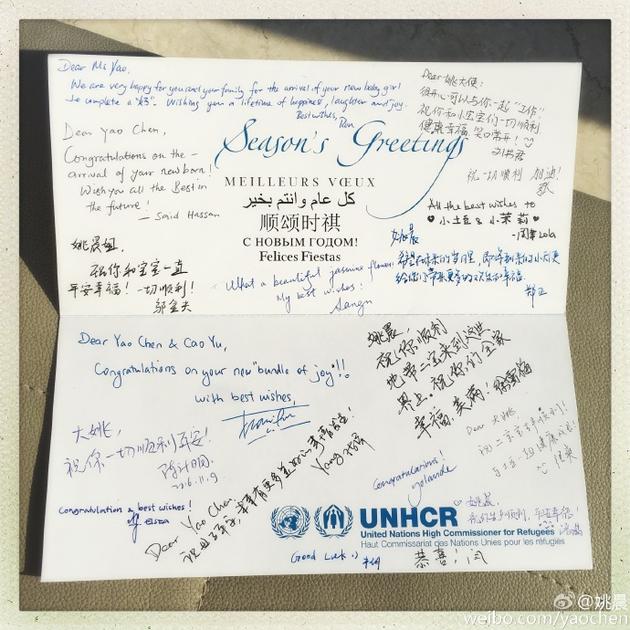 Dear Ms Yao,
We are very happy for you and your family for the arrival of your new baby girl
to complete a "好". Wishing you a lifetime of happiness, laughter and joy.
Best wishes,
Dear 姚大使：
很开心可以与你一起"工作"
祝你和小宝宝们一切顺利
健康幸福 笑口常开！
Dear Yao Chen,
Congratulations on the
arrival of your newborn!
Wish you all the Best in
the future!
— Said Hassan
Season's Greetings
MEILLEURS VŒUX
كل عام وانتم بخير
顺颂时祺
С НОВЫМ ГОДОМ!
Felices Fiestas
祝一切顺利 加油！
All the best wishes to
小土豆 & 小茉莉
姚晨姐，
祝你和宝宝一直
平安幸福！一切顺利！
What a beautiful jasmine flower!
My best wishes!
姚晨
Dear Yao Chen & Cao Yu,
Congratulations on your new "bundle of joy"!!
with best wishes,
姚晨，
祝你顺利
地带二宝来到这世
界上。祝你们全家
幸福，美满！
大姚，
祝你一切顺利平安！
2016.11.9
Congratulation & best wishes!
Dear Yao Chen,
Yang
Congratulations!
Yolande
Dear 大姚
UNHCR
United Nations High Commissioner for Refugees
Haut Commissariat des Nations Unies pour les réfugiés
Good Luck :)
恭喜！闫
@姚晨
weibo.com/yaochen